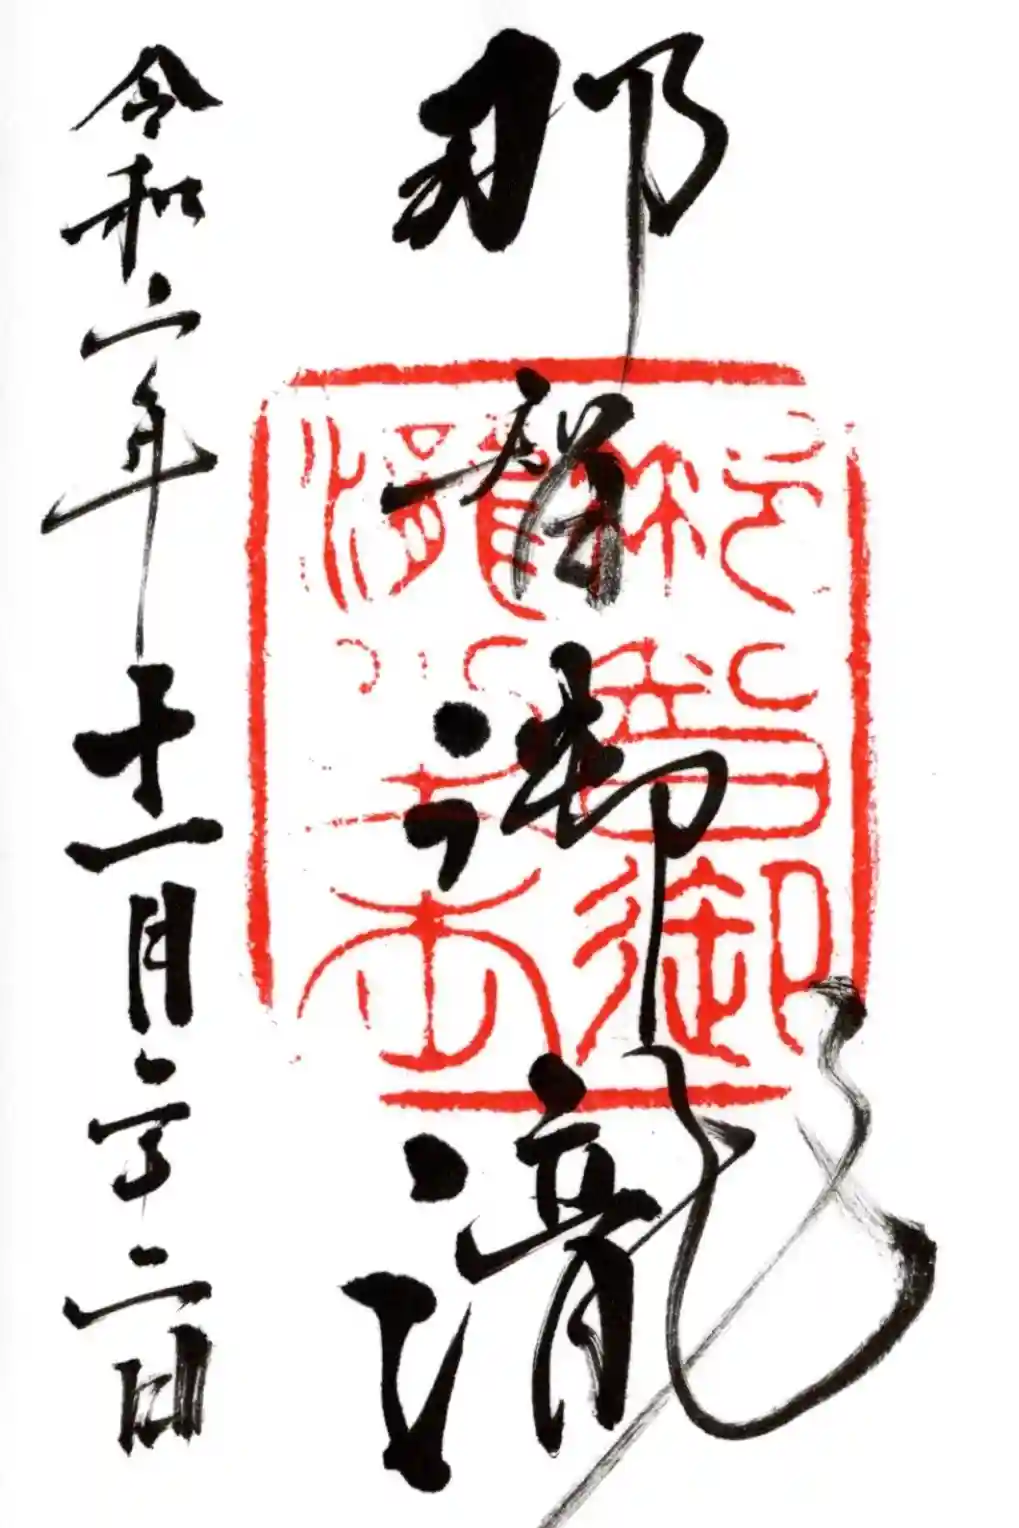 那智御瀧
令和二年十一月二十二日